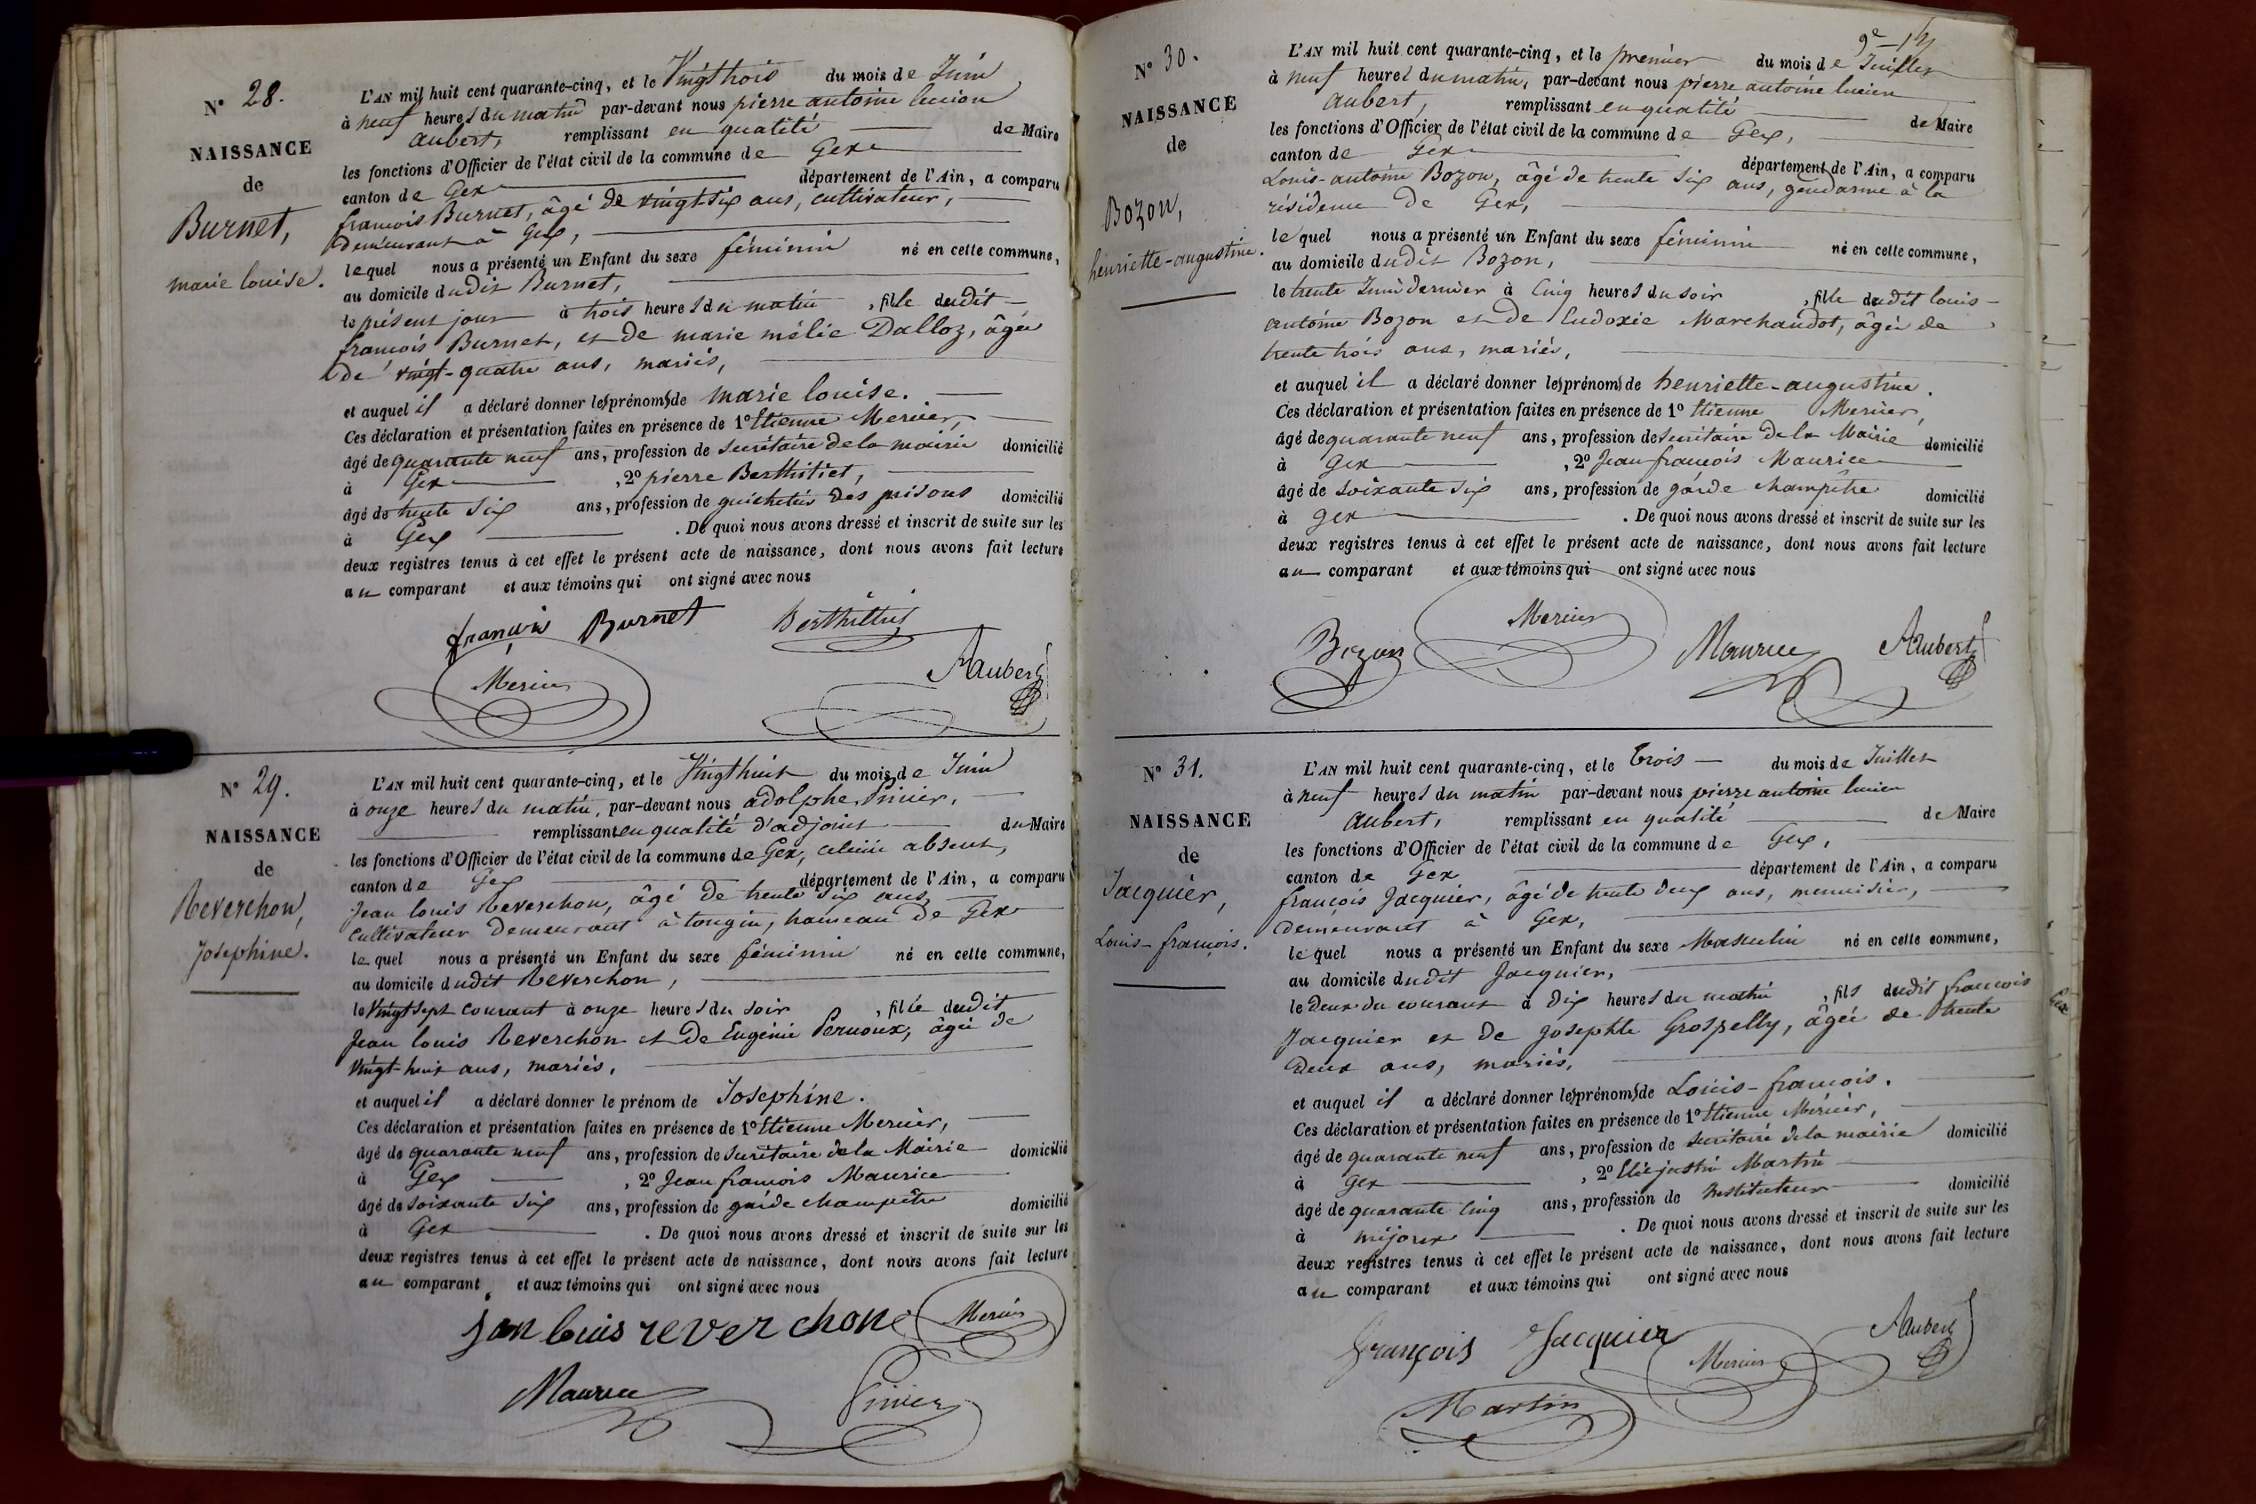 N° 28.
NAISSANCE
de
Burnet,
marie louise.
L'AN mil huit cent quarante-cinq, et le Vingt trois du mois de Juin
à neuf heures du matin par-devant nous pierre antoine lucien
aubert, remplissant en qualité de Maire
les fonctions d'Officier de l'état civil de la commune de Gex
canton de Gex département de l'Ain, a comparu
françois Burnet, âgé de vingt-six ans, cultivateur,
demeurant à Gex,
lequel nous a présenté un Enfant du sexe féminin né en cette commune,
au domicile dudit Burnet,
le présent jour à trois heures du matin, fille dudit
françois Burnet, et de marie mélie Dalloz, âgée
de vingt-quatre ans, mariés,
et auquel il a déclaré donner le(s) prénom(s) de marie louise.
Ces déclaration et présentation faites en présence de 1° Etienne Mercier,
âgé de quarante neuf ans, profession de secrétaire de la mairie domicilié
à Gex, 2° pierre Berthiliet,
âgé de trente six ans, profession de guichetier des prisons domicilié
à Gex. De quoi nous avons dressé et inscrit de suite sur les
deux registres tenus à cet effet le présent acte de naissance, dont nous avons fait lecture
au comparant et aux témoins qui ont signé avec nous
françois Burnet
Mercier Aubert
N° 29.
NAISSANCE
de
Reverchon,
Josephine.
L'AN mil huit cent quarante-cinq, et le Vingt huit du mois de Juin
à onze heures du matin, par-devant nous adolphe Pinier,
remplissant en qualité d'adjoint du Maire
les fonctions d'Officier de l'état civil de la commune de Gex, celui ci absent,
canton de Gex département de l'Ain, a comparu
Jean louis Reverchon, âgé de trente six ans,
cultivateur demeurant à tougin, hameau de Gex
lequel nous a présenté un Enfant du sexe féminin né en cette commune,
au domicile dudit Reverchon,
le Vingt sept courant à onze heures du soir, fille dudit
Jean louis Reverchon et De Eugénie Pernoux, âgée de
vingt-huit ans, mariés,
et auquel il a déclaré donner le prénom de Josephine.
Ces déclaration et présentation faites en présence de 1° Etienne Mercier,
âgé de quarante neuf ans, profession de secrétaire de la Mairie domicilié
à Gex, 2° Jean françois Maurice
âgé de soixante six ans, profession de garde champêtre domicilié
à Gex. De quoi nous avons dressé et inscrit de suite sur les
deux registres tenus à cet effet le présent acte de naissance, dont nous avons fait lecture
au comparant, et aux témoins qui ont signé avec nous
jan louis reverchon Mercier
Maurice Pinier
N° 30.
NAISSANCE
de
Bozon,
henriette-augustine.
L'AN mil huit cent quarante-cinq, et le premier du mois de Juillet
à neuf heures du matin, par-devant nous pierre antoine lucien
aubert, remplissant en qualité de Maire
les fonctions d'Officier de l'état civil de la commune de Gex,
canton de Gex département de l'Ain, a comparu
Louis-antoine Bozon, âgé de trente six ans, gendarme à la
résidence de Gex,
lequel nous a présenté un Enfant du sexe féminin né en cette commune,
au domicile dudit Bozon,
le trente Juin dernier à Cinq heures du soir, fille dudit louis-
antoine Bozon et de Eudoxie Marchandot, âgée de
trente trois ans, mariés,
et auquel il a déclaré donner le(s) prénom(s) de henriette-augustine.
Ces déclaration et présentation faites en présence de 1° Etienne Mercier,
âgé de quarante neuf ans, profession de secrétaire de la Mairie domicilié
à Gex, 2° Jean françois Maurice
âgé de soixante six ans, profession de garde champêtre domicilié
à Gex. De quoi nous avons dressé et inscrit de suite sur les
deux registres tenus à cet effet le présent acte de naissance, dont nous avons fait lecture
au comparant et aux témoins qui ont signé avec nous
Bozon Mercier Maurice Aubert
N° 31.
NAISSANCE
de
Jacquier,
Louis-françois.
L'AN mil huit cent quarante-cinq, et le trois du mois de Juillet
à neuf heures du matin par-devant nous pierre antoine lucien
aubert, remplissant en qualité de Maire
les fonctions d'Officier de l'état civil de la commune de Gex,
canton de Gex département de l'Ain, a comparu
françois Jacquier, âgé de trente deux ans, menuisier,
demeurant à Gex,
lequel nous a présenté un Enfant du sexe Masculin né en cette commune,
au domicile dudit Jacquier,
le deux du courant à dix heures du matin, fils dudit françois
Jacquier et de Josephte Grospelly, âgée de trente
deux ans, mariés,
et auquel il a déclaré donner le(s) prénom(s) de Louis-françois.
Ces déclaration et présentation faites en présence de 1° Etienne Mercier,
âgé de quarante neuf ans, profession de secrétaire de la mairie domicilié
à Gex, 2° Elie justin Martin
âgé de quarante cinq ans, profession de instituteur domicilié
à mijoux. De quoi nous avons dressé et inscrit de suite sur les
deux registres tenus à cet effet le présent acte de naissance, dont nous avons fait lecture
au comparant et aux témoins qui ont signé avec nous
françois Jacquier Mercier Aubert
Martin